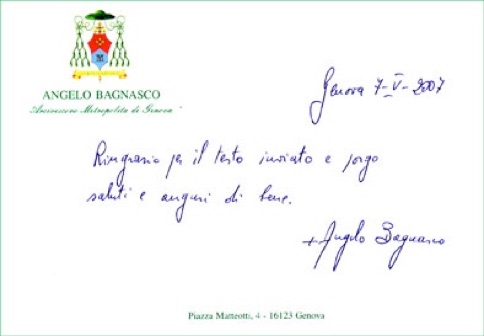 ANGELO BAGNASCO
"Arcivescovo Metropolita di Genova"
Genova 7-V-2007
Ringrazio per il testo inviato e porgo
saluti e auguri di bene.
+Angelo Bagnasco
Piazza Matteotti, 4 - 16123 Genova